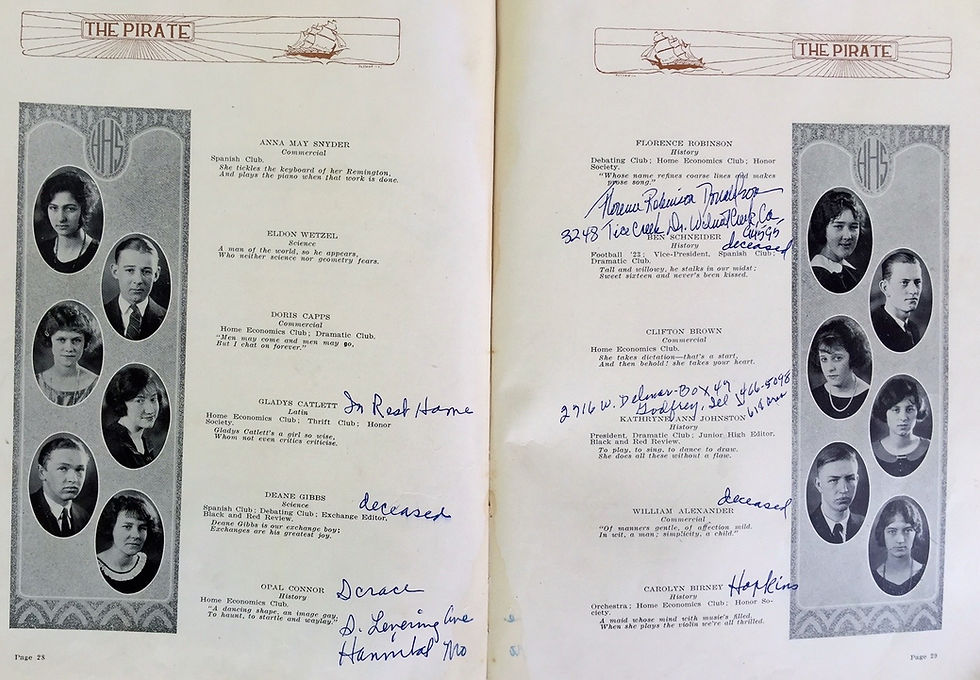 THE PIRATE
AHS
ANNA MAY SNYDER
Commercial
Spanish Club.
She tickles the keyboard of her Remington,
And plays the piano when that work is done.
ELDON WETZEL
Science
A man of the world, so he appears,
Who neither science nor geometry fears.
DORIS CAPPS
Commercial
Home Economics Club; Dramatic Club.
"Men may come and men may go,
But I chat on forever."
GLADYS CATLETT In Rest Home
Latin
Home Economics Club; Thrift Club; Honor
Society.
Gladys Catlett's a girl so wise,
Whom not even critics criticise.
DEANE GIBBS
Science
deceased
Spanish Club; Debating Club; Exchange Editor,
Black and Red Review.
Deane Gibbs is our exchange boy;
Exchanges are his greatest joy.
OPAL CONNOR
History
Home Economics Club.
"A dancing shape, an image gay,
To haunt, to startle and waylay."
S. Levering Ave
Hannibal Mo
Page 28
THE PIRATE
AHS
FLORENCE ROBINSON
History
Debating Club; Home Economics Club; Honor
Society.
"Whose name refines coarse lines and makes
prose song."
Florence Robinson Donaldson
3248 Tice Creek Dr. Walnut Creek, Ca.
94595
BEN SCHNEIDER
deceased
History
Football '23; Vice-President, Spanish Club;
Dramatic Club.
Tall and willowy, he stalks in our midst;
Sweet sixteen and never's been kissed.
CLIFTON BROWN
Commercial
Home Economics Club.
She takes dictation—that's a start,
And then behold! she takes your heart.
2716 W. Delmar-Box 49 466-5098
Godfrey, Ill 618
KATHRYNE ANN JOHNSTON
History
President, Dramatic Club; Junior High Editor,
Black and Red Review.
To play, to sing, to dance to draw.
She does all these without a flaw.
deceased
WILLIAM ALEXANDER
Commercial
"Of manners gentle, of affection mild.
In wit, a man; simplicity, a child."
CAROLYN BIRNEY Hopkins
History
Orchestra; Home Economics Club; Honor So-
ciety.
A maid whose mind with music's filled
When she plays the violin we're all thrilled.
Page 29